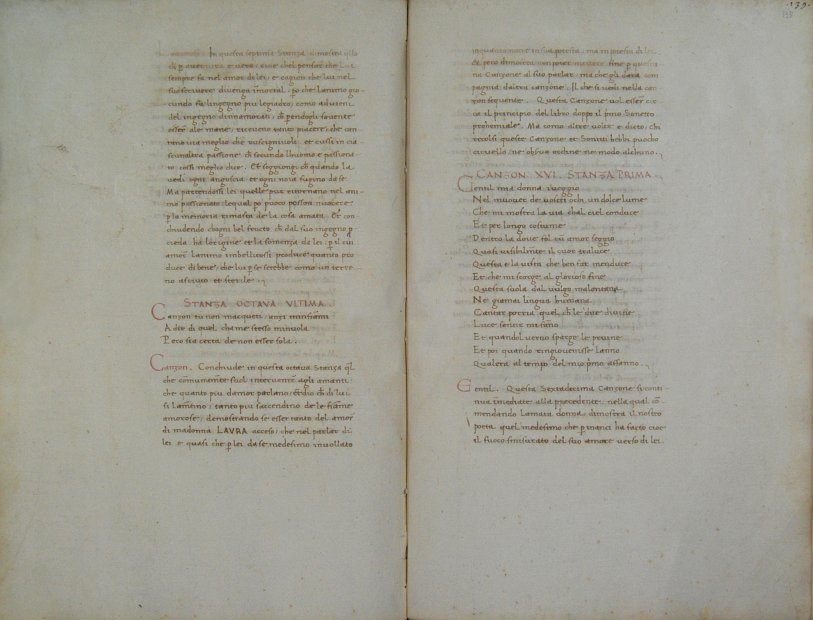 In questa septima Stanza dimostra qllo
sempre fa nel amor di lei, et cogien che lui nel
suo scrivere divenga imortal. po che lanimo gio
cundo fa lingegno piu legiadro; come advien
del ingegno dinnamorati, di perdogli sovente
esser ale mane, ricevono tanto piacere; che can
tino via meglio che
scunaltra passione, di secundo lhuomo e passiona
to cossi meglio dice. Et soggiongi di quando la
vedi ogni angustia et ogni noia fugino da se.
Ma partendossi lei quelle pur entrano nel ani
mo passionato, lequal po puoco posson nuocere,
p la memoria rimasta de la cosa amata. Et con
chiudendo chogni bel fructo ch dal suo ingegno p
cieda. ha lorigine et la somenza da lei: p il cui
amor lanimo imbellicossi produce quanto pro
duce di bene, che lui p se serebbe como un terre
no asciuto et sterile.
STANZA OCTAVA ULTIMA.
Canzon tu non macqueti anzi minfiammi
A dir di quel chame stesso minvola
Pero sia certa de non esser sola.
Canzon. Conchiude in questa octava Stanza ql
che comunamente suol intervenire agli amanti
che quanto piu damor parlano, et odio ch di lui
si lamentino, tanto piu saccendino de le fiame
amorose, demostrando se esser tanto del amor
di madonna LAVRA acceso, che nel parlar di
lei e quasi che p lei da se medesimo involato
139
in quanto non e in sua potesta, ma in puesta di lei.
Et pero dimostra non poter mettere fine p questa
na Canzone al suo parlar, ma che gli dara com
pagnia daltra canzone. Il che si vedi nella can
zon sequente. Questa Canzone vol esser cir
ca il principio del libro doppo il primo Sonetto
prohemiale. Ma como altre volte e dicto, chi
recolsi queste Canzone et Sonetti hebbi puocho
cervello ne observa ordine ne modo alchuno.
CANZON XVI. STANZA PRIMA.
Gentil mia donna i veggio
Nel muover de vostri ochi un dolce lume
Che mi mostra la via chal ciel conduce
Et per longo costume
Dentro la dove sol cu amor seggio
Quasi visibilmente il cuor traluce.
Questa e la vista che ben far menduce
Et che mi scorge al glorioso fine
Questa suola dal vulgo malontana
Ne giamai lingua humana
Cantar poeria quel ch le due divine
Luce sentir mi fano
Et quandol verno sparge le pruine
Et poi quando ringiovenisse lanno
Qualera al tempo del mio pimo affanno.
Gentil. Questa Sextadecima Canzone si conti
nua imediate alla precedente, nella qual co
mendando lamata donna, dimostra il nostro
poeta quel medesimo che p inanci ha facto cioe
il fuoco smisurato del suo amore verso di lei